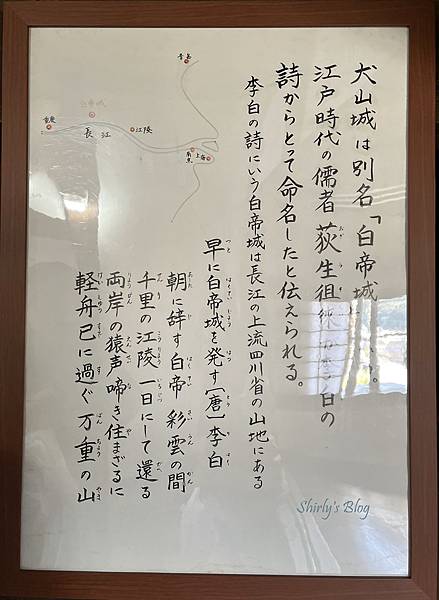 犬山城は別名「白帝城 う。
江戸時代の儒者 荻生徂 白の
詩からとって命名したと伝えられる。
李白の詩にいう白帝城は長江の上流四川省の山地にある
早に白帝城を発す[唐]李白
朝に辞す白帝 彩雲の間
千里の江陵 一日にして還る
両岸の猿声啼き住まざるに
軽舟已に過ぐ 万重の山
青島
白帝城
重慶
長江
江陵
南京
上海
Shirly's Blog